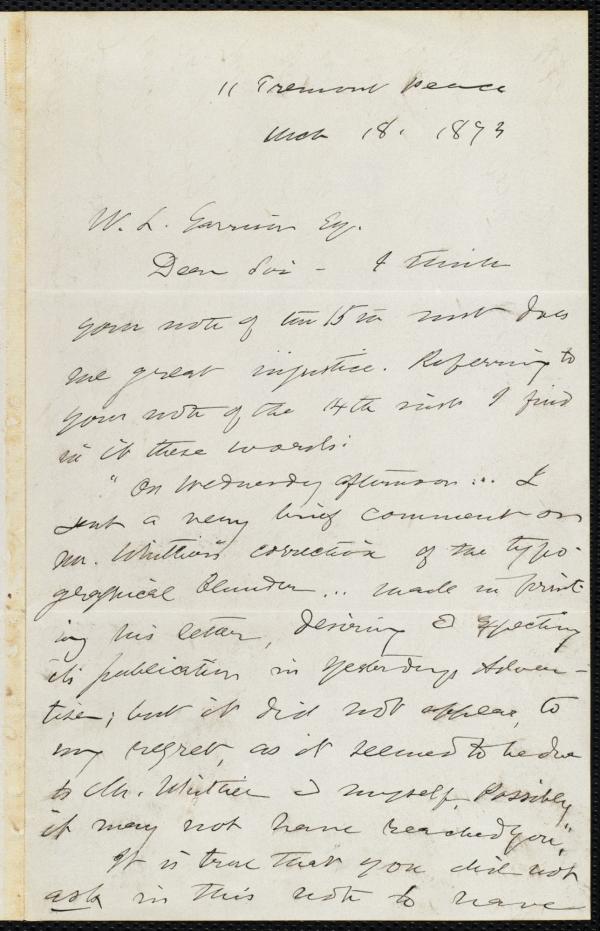 11 Tremont Place
Mch 18. 1873
W. L. Garrison Esq.
Dear Sir - I think
your note of the 15th inst does
me great injustice. Referring to
your note of the 14th inst I find
in it these words:
"On Wednesday afternoon ... I
sent a very brief comment on
Mr. Whittier's correction of the typo-
graphical blunder ... made in print-
ing his letter, desiring & expecting
its publication in yesterday's Adver-
tiser; but it did not appear, to
my regret, as it seemed to be due
to Mr. Whittier & myself. Possibly
it may not have reached you."
It is true that you did not
ask in this note to have